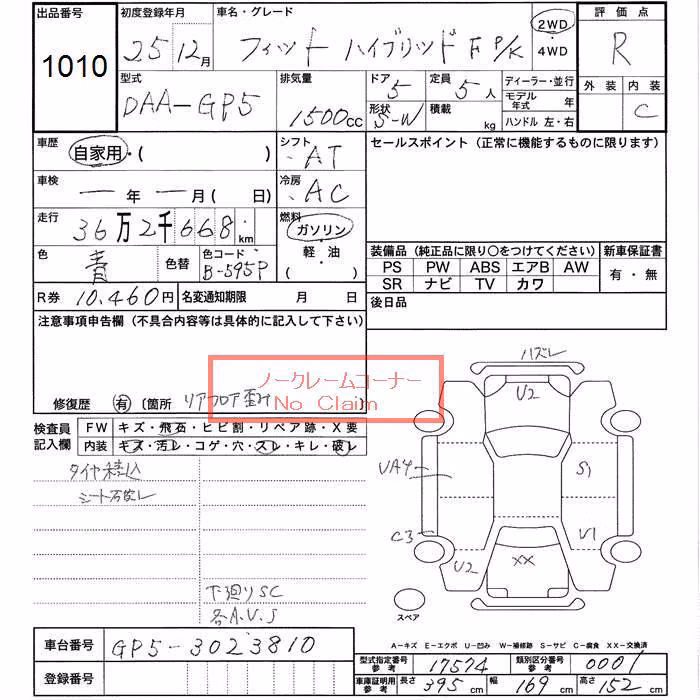 出品番号 初度登録年月 車名・グレード 評価点
1010 25年12月 フィット ハイブリッド F P/K 2WD ・4WD R
型式 排気量 ドア 定員 ディーラー・並行 外装 内装
DAA-GP5 1500cc 5 5人 モデル年式 年 C
形状 積載 ハンドル 左・右
S-W kg
車歴 シフト セールスポイント (正常に機能するものに限ります)
自家用・( ) AT
車検 冷房
ー年ー月( 日) AC
走行 燃料
36万2千668km ガソリン
軽・油
( )
色 色替 色コード 装備品 (純正品に限り○をつけてください) 新車保証書
青 B-595P PS PW ABS エアB AW 有・無
SR ナビ TV カワ
R券 10.460円 名変通知期限 月 日 後日品
注意事項申告欄 (不具合内容等は具体的に記入して下さい)
ノークレームコーナー
No Claim
修復歴 有 〔箇所 リアフロア歪み 〕
検査員記入欄 FW キズ・飛石・ヒビ割・リペア跡・X要
内装 キズ・汚レ・コゲ・穴・スレ・キレ・破レ
タイヤ積込
シート石灰し
下廻りSC
各A.U.S
ハズレ
U2
UA4 S1
C3 U1
U2 XX
スペア
A-キズ E-エクボ U-凹み W-補修跡 S-サビ C-腐食 XX-交換済
車台番号 GP5-3023810
登録番号
型式指定番号 参考 17574 類別区分番号 参考 0001
車庫証明用 参考 長さ 395cm 幅 169cm 高さ 152cm